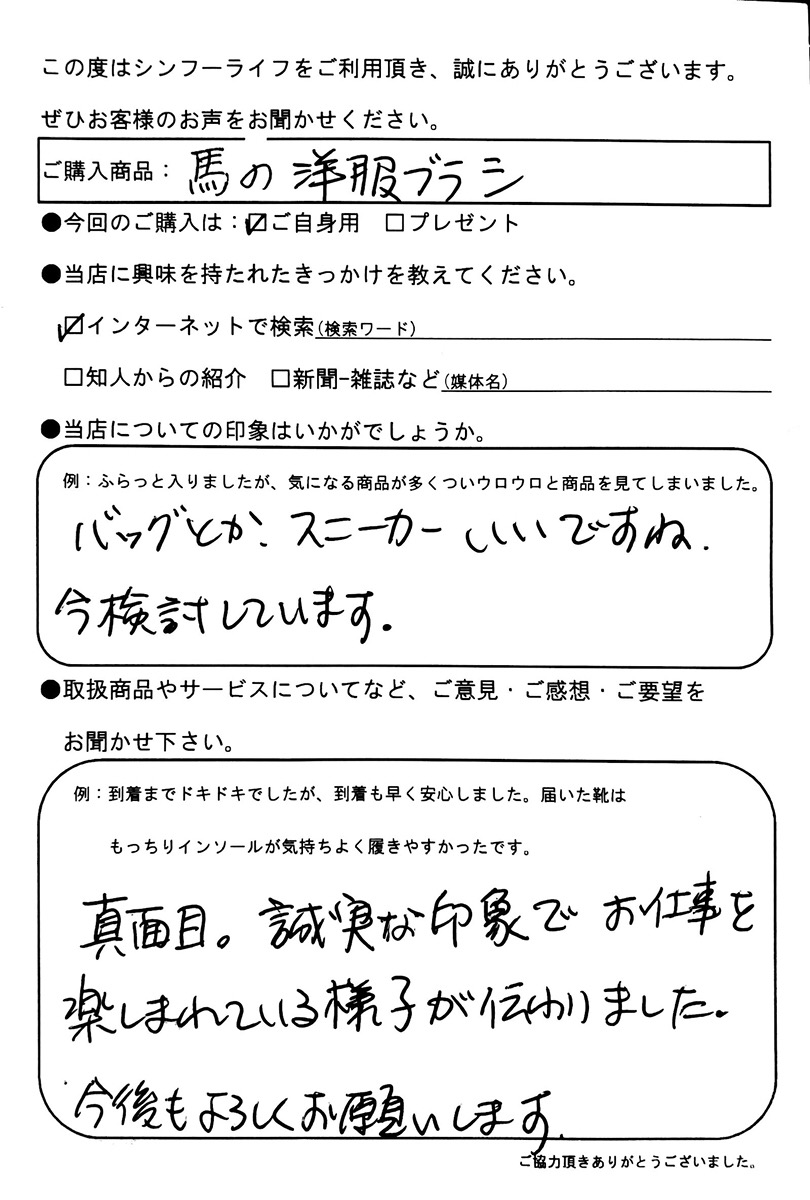 この度はシンフーライフをご利用頂き、誠にありがとうございます。
ぜひお客様のお声をお聞かせください。
ご購入商品：馬の洋服ブラシ
●今回のご購入は：☑ご自身用　□プレゼント
●当店に興味を持たれたきっかけを教えてください。
☑インターネットで検索(検索ワード)
□知人からの紹介　□新聞-雑誌など(媒体名)
●当店についての印象はいかがでしょうか。
例：ふらっと入りましたが、気になる商品が多くついウロウロと商品を見てしまいました。
バッグとか、スニーカーいいですね.
今検討しています.
●取扱商品やサービスについてなど、ご意見・ご感想・ご要望を
お聞かせ下さい。
例：到着までドキドキでしたが、到着も早く安心しました。届いた靴は
もっちりインソールが気持ちよく履きやすかったです。
真面目。誠実な印象でお仕事を
楽しまれている様子が伝わりました。
今後もよろしくお願いします.
ご協力頂きありがとうございました。